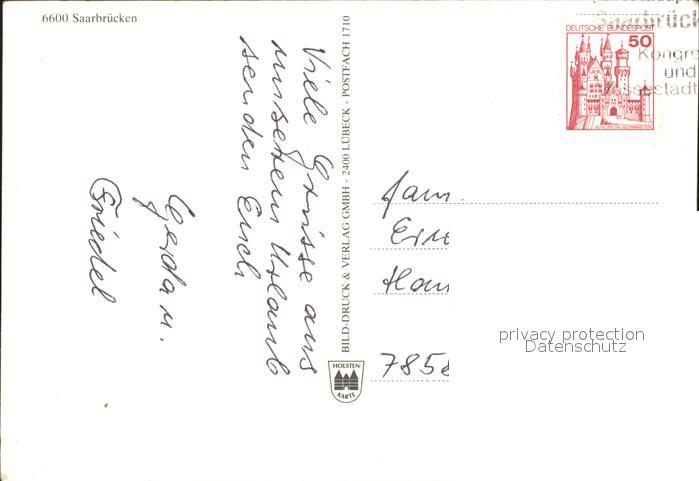 6600 Saarbrücken
Viele Grüsse aus
unserem Urlaub
senden Euch
Gerda u.
Friedel
BILD-DRUCK & VERLAG GMBH - 2400 LÜBECK - POSTFACH 1710
HOLSTEN-
KARTE
DEUTSCHE BUNDESPOST
50
SCHLOSS NEUSCHWANSTEIN
Saarbrück
Kongre
und
Messestadt
Fam.
Han
785
privacy protection
Datenschutz